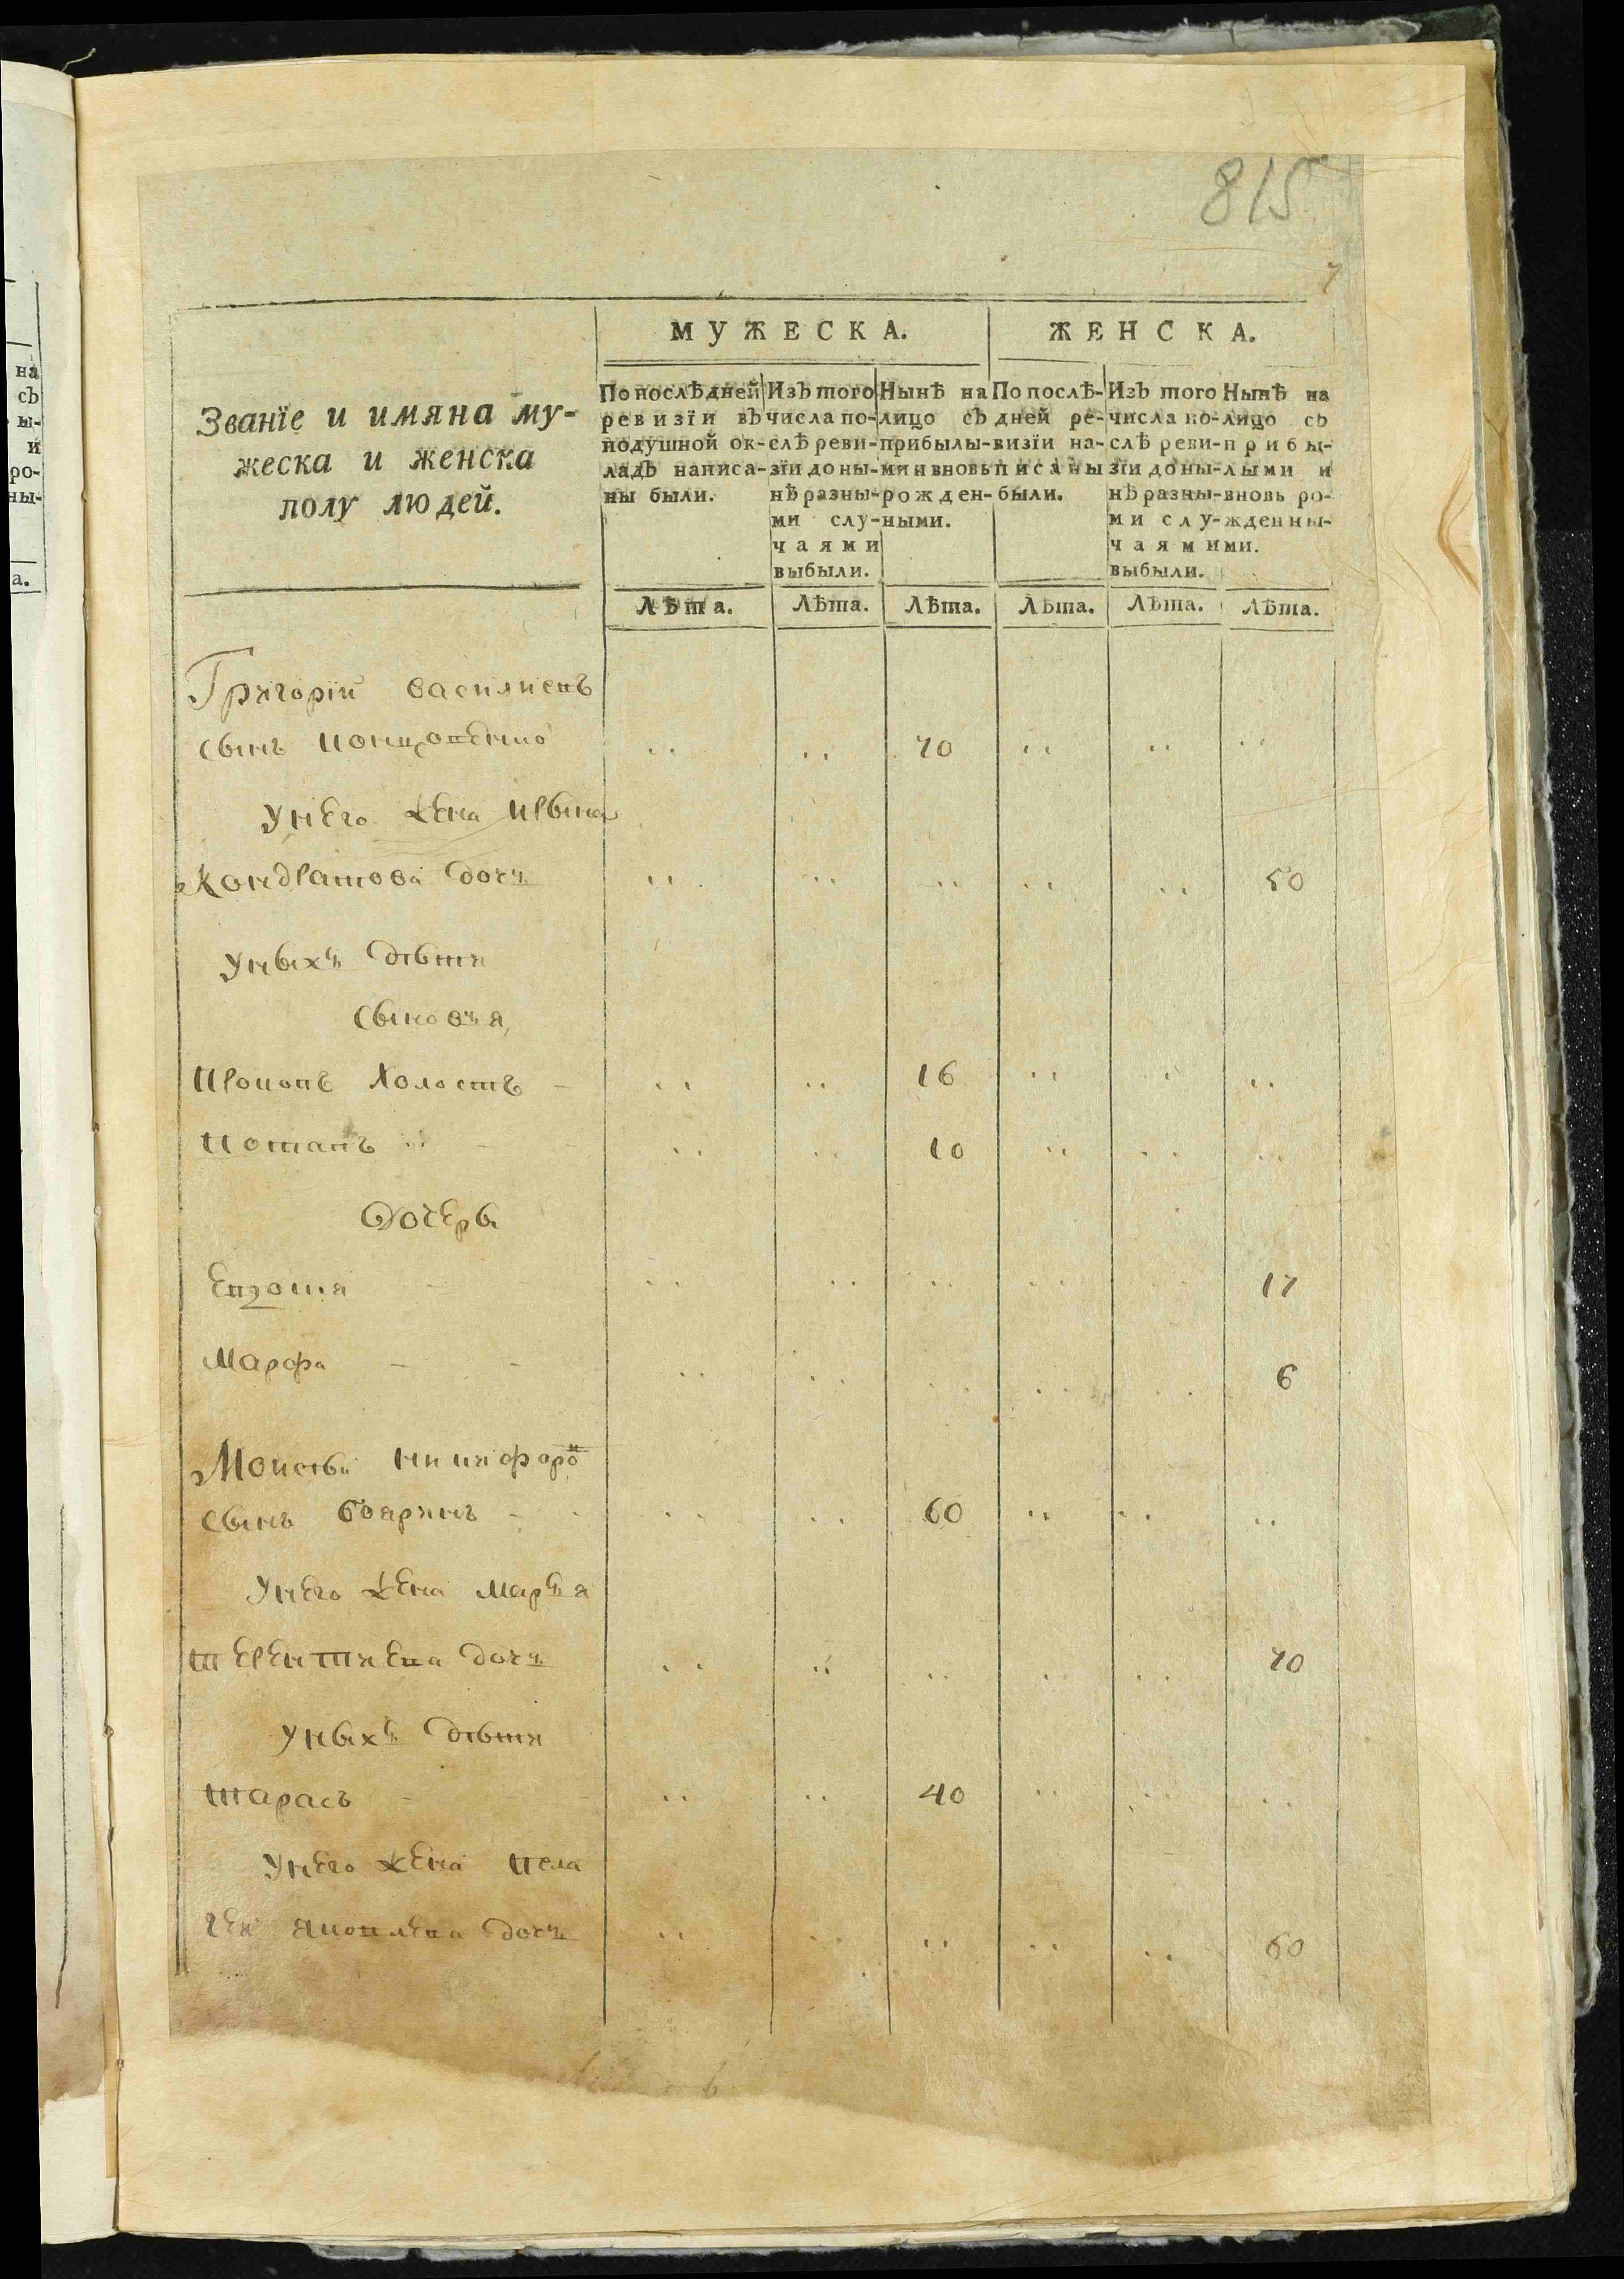 815
7
МУЖЕСКА.
ЖЕНСКА.
Званїе и имяна му-
жеска и женска
полу людей.
По послѣдней
ревизїи въ
подушной ок-
ладъ написа-
ны были.
Изъ того
числа по-
слѣ реви-
зїи до ны-
нѣ разны-
ми слу-
чаями
выбыли.
Нынѣ на
лицо съ
прибылы-
ми и вновь
рожден-
ными.
По послѣ-
дней ре-
визїи на-
писаны
были.
Изъ того
числа по-
слѣ реви-
зїи до ны-
нѣ разны-
ми слу-
чаями
выбыли.
Нынѣ на
лицо съ
прибы-
лыми и
вновь ро-
жденны-
ми.
Лѣта. Лѣта. Лѣта. Лѣта. Лѣта. Лѣта.
Григорїй василиевъ
сынъ 70
унего жена
кондратова дочь 50
уныхъ дѣти
сыновья
прокопъ холостъ 16
потапъ 10
дочеры
17
марфа 6
Моисѣй никифоро
сынъ бояринъ 60
унего жена марья
терентиева дочь 70
уныхъ дѣти
тарасъ 40
унего жена пела
гея яковлева дочь 60
на
съ
ы-
и
ро-
ны-
а.